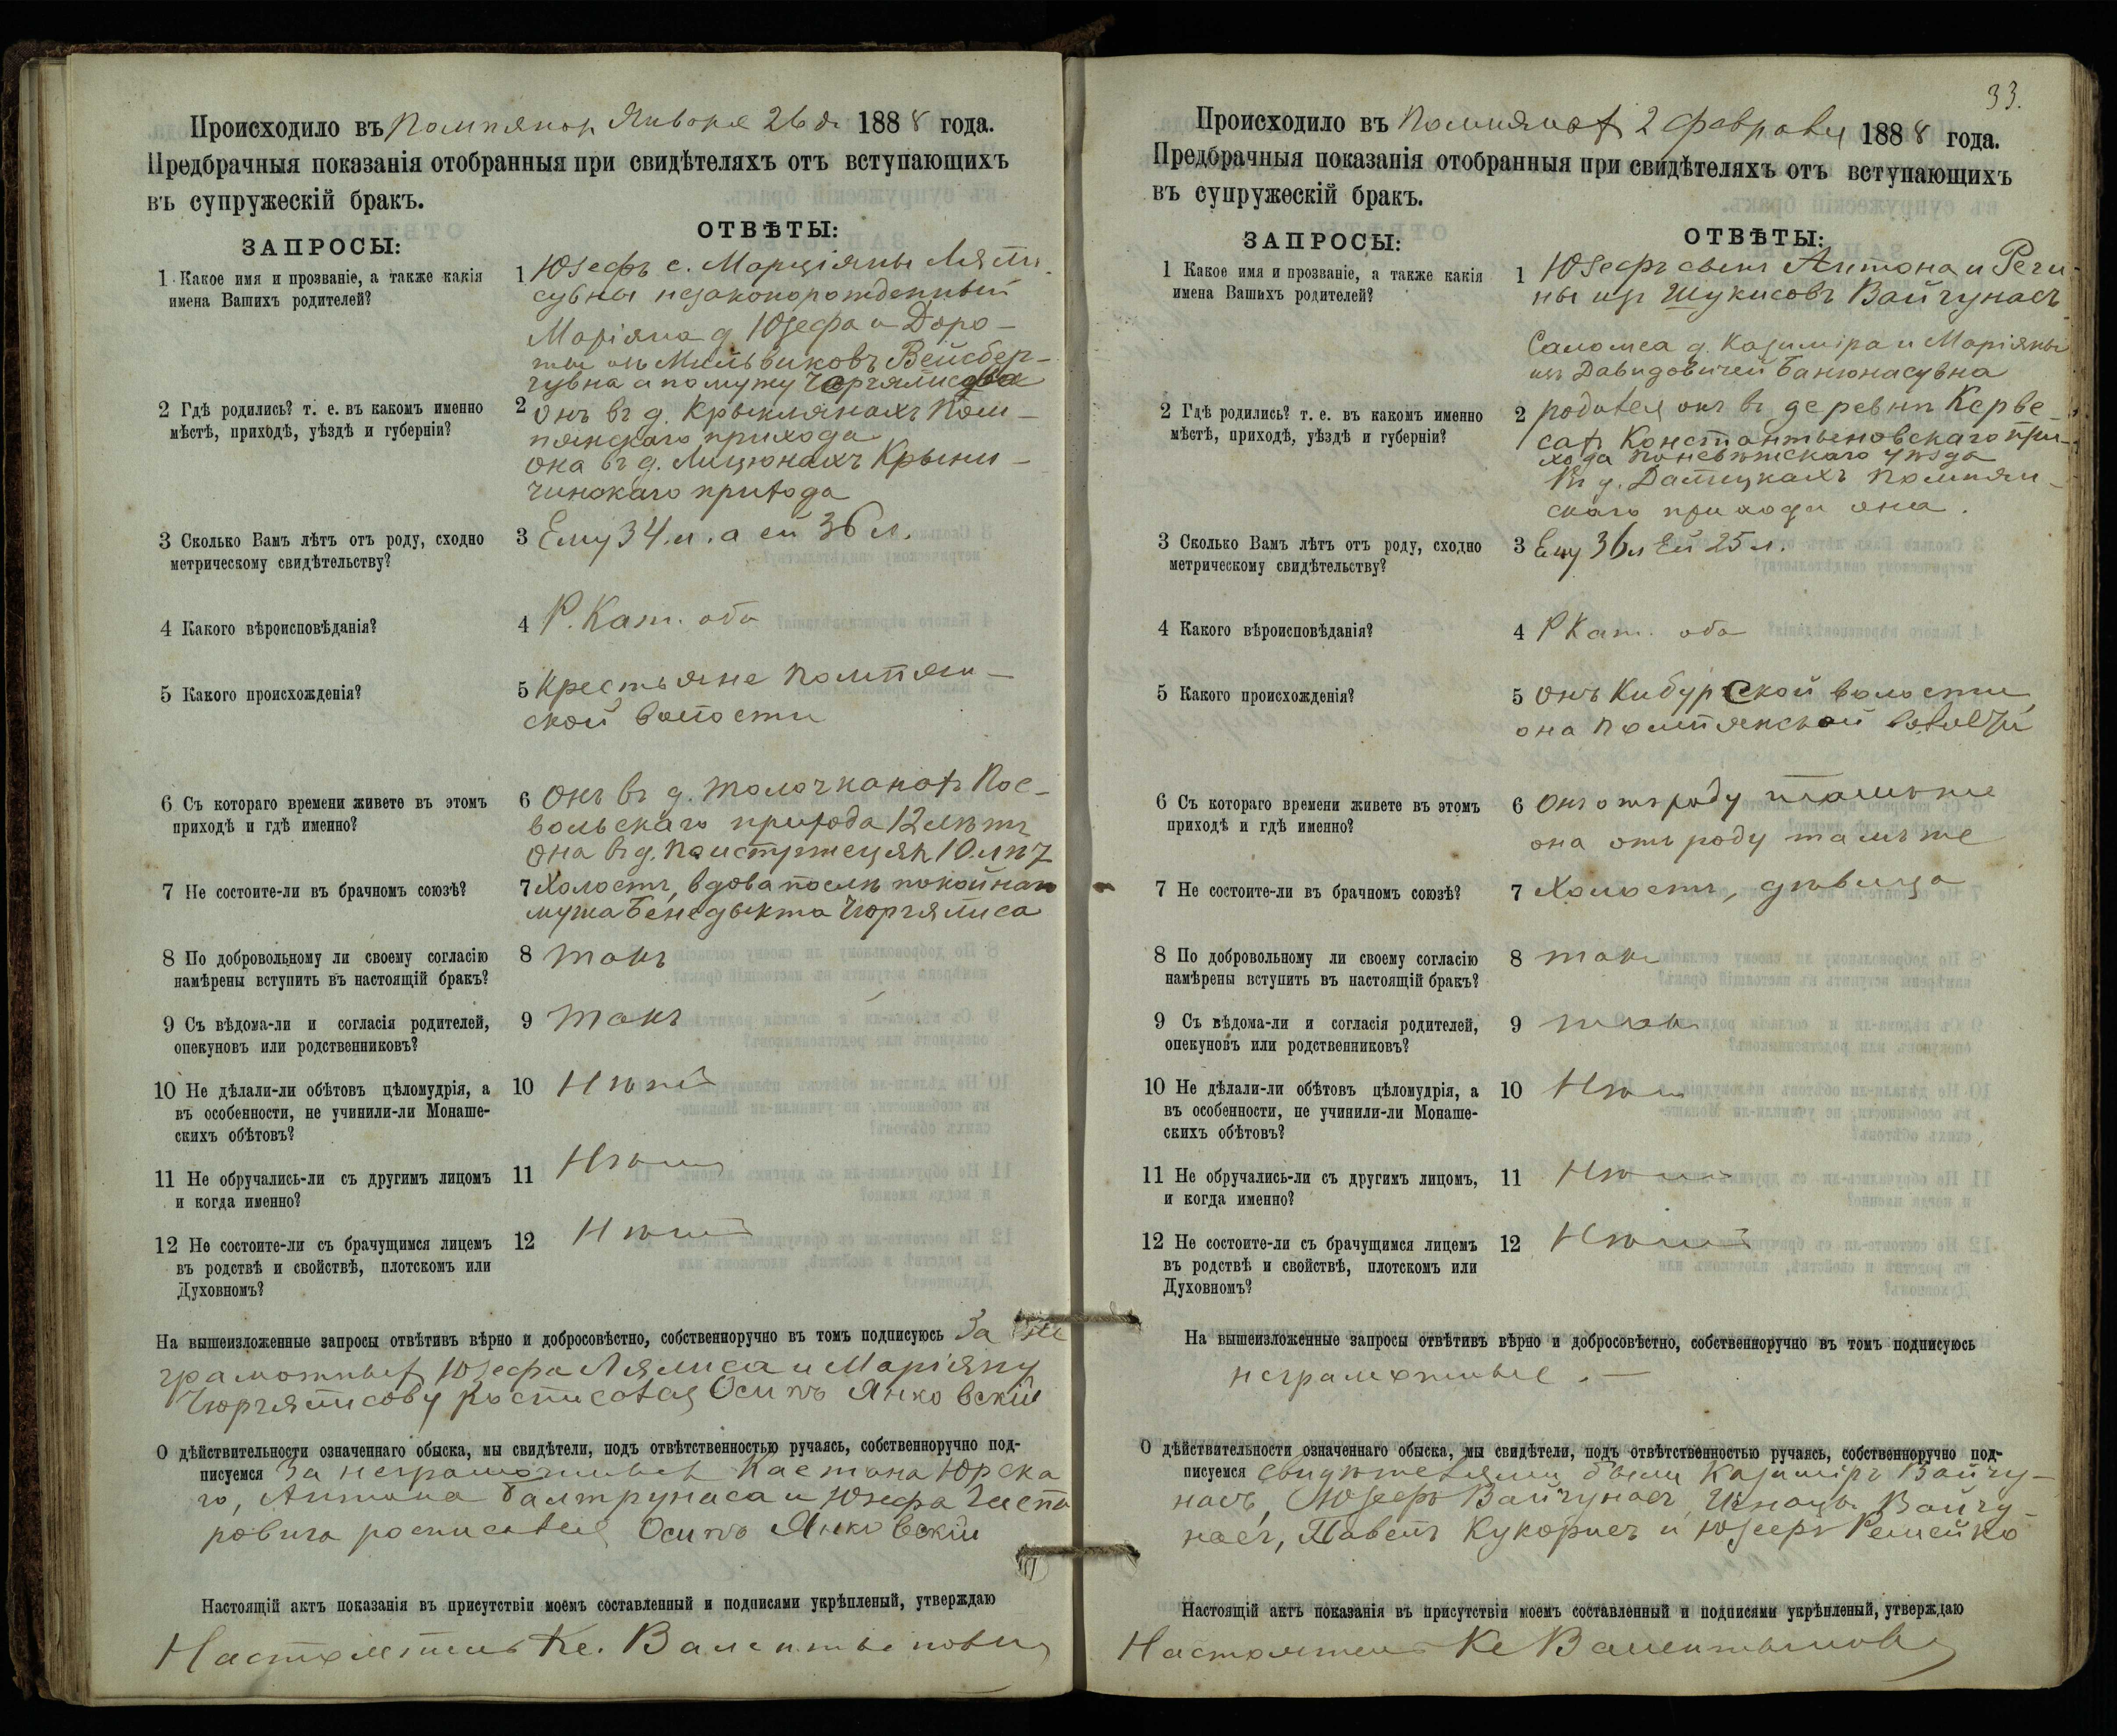 Происходило въ Помпянах Января 26 д. 1888 года.
Предбрачныя показанія отобранныя при свидѣтеляхъ отъ вступающихъ
въ супружескій бракъ.
ЗАПРОСЫ:
ОТВѢТЫ:
1 Какое имя и прозваніе, а также какія
имена Вашихъ родителей?
1 Юзефъ с. Марціяны Лялы-
сувны незаконорожденный
Маріяна д Юзефа и Доро-
ты изъ Мильвиковъ Вейсбер-
гувна а по мужу
2 Гдѣ родились? т. е. въ какомъ именно
мѣстѣ, приходѣ, уѣздѣ и губерніи?
2 онъ въ д. Крыклянахъ Пом-
пянскаго прихода
она въ д. Лицюнахъ Крыни-
чинскаго прихода
3 Сколько Вамъ лѣтъ отъ роду, сходно
метрическому свидѣтельству?
3 Ему 34 л. а ей 36 л.
4 Какого вѣроисповѣданія?
4 Р. Кат. оба
5 Какого происхожденія?
5 Крестьяне Помпян-
ской волости
6 Съ котораго времени живете въ этомъ
приходѣ и гдѣ именно?
6 Онъ въ д. Толочканахъ Пос-
вольскаго прихода 12 лѣтъ
она въ д. 10 лѣтъ
7 Не состоите-ли въ брачномъ союзѣ?
7 Холостъ, вдова послѣ покойнаго
мужа Бенедыкта Чюргялиса
8 По добровольному ли своему согласію
намѣрены вступить въ настоящій бракъ?
8 такъ
9 Съ вѣдома-ли и согласія родителей,
опекуновъ или родственниковъ?
9 такъ
10 Не дѣлали-ли обѣтовъ цѣломудрія, а
въ особенности, не учинили-ли Монаше-
скихъ обѣтовъ?
10 Нѣтъ
11 Не обручались-ли съ другимъ лицомъ
и когда именно?
11 Нѣтъ
12 Не состоите-ли съ брачущимся лицемъ
въ родствѣ и свойствѣ, плотскомъ или
Духовномъ?
12 Нѣтъ
На вышеизложенные запросы отвѣтивъ вѣрно и добросовѣстно, собственноручно въ томъ подписуюсь За не
грамотныхъ Юзефа Лялиса и Маріяну
Чюргялисову росписался Осипъ Янковскій
О дѣйствительности означеннаго обыска, мы свидѣтели, подъ отвѣтственностью ручаясь, собственноручно под-
писуемся За неграмотныхъ Каетана Юрска
го, Антона Балтрунаса и Юзефа
росписался Осипъ Янковскій
Настоящій актъ показанія въ присутствіи моемъ составленный и подписями укрѣпленый, утверждаю
Настоятель Кс. Валентыновичъ
33.
Происходило въ Помпянахъ 2 Февраля 1888 года.
Предбрачныя показанія отобранныя при свидѣтеляхъ отъ вступающихъ
въ супружескій бракъ.
ЗАПРОСЫ:
ОТВѢТЫ:
1 Какое имя и прозваніе, а также какія
имена Вашихъ родителей?
1 Юзефъ сынъ Антона и Реги-
ны изъ Шукисовъ Вайчунасъ
Саломеа д. Казиміра и Маріяны
изъ Давидовичей Банюнасувна
2 Гдѣ родились? т. е. въ какомъ именно
мѣстѣ, приходѣ, уѣздѣ и губерніи?
2 родился онъ въ деревнѣ Керве-
сахъ Константыновскаго при-
хода Поневѣжскаго уѣзда
въ д. Помпян-
скаго прихода она.
3 Сколько Вамъ лѣтъ отъ роду, сходно
метрическому свидѣтельству?
3 Ему 36 л Ей 25 л.
4 Какого вѣроисповѣданія?
4 Р Кат. оба
5 Какого происхожденія?
5 онъ Кибурской волости
она Помпянской волости
6 Съ котораго времени живете въ этомъ
приходѣ и гдѣ именно?
6 Онъ отъ роду тамъ же
она отъ роду тамъ же
7 Не состоите-ли въ брачномъ союзѣ?
7 Холостъ, дѣвица
8 По добровольному ли своему согласію
намѣрены вступить въ настоящій бракъ?
8 такъ
9 Съ вѣдома-ли и согласія родителей,
опекуновъ или родственниковъ?
9 такъ
10 Не дѣлали-ли обѣтовъ цѣломудрія, а
въ особенности, не учинили-ли Монаше-
скихъ обѣтовъ?
10 Нѣтъ
11 Не обручались-ли съ другимъ лицомъ,
и когда именно?
11 Нѣтъ
12 Не состоите-ли съ брачущимся лицемъ
въ родствѣ и свойствѣ, плотскомъ или
Духовномъ?
12 Нѣтъ
На вышеизложенные запросы отвѣтивъ вѣрно и добросовѣстно, собственноручно въ томъ подписуюсь
неграмотные. —
О дѣйствительности означеннаго обыска, мы свидѣтели, подъ отвѣтственностью ручаясь, собственноручно под-
писуемся свидѣтелями были Казиміръ Вайчу-
насъ, Юзефъ Вайчунасъ, Игнацы Вайчу-
насъ, Павелъ Кукорисъ и Юзефъ Ремейко
Настоящій актъ показанія въ присутствіи моемъ составленный и подписями укрѣпленый, утверждаю
Настоятель Кс Валентыновичъ